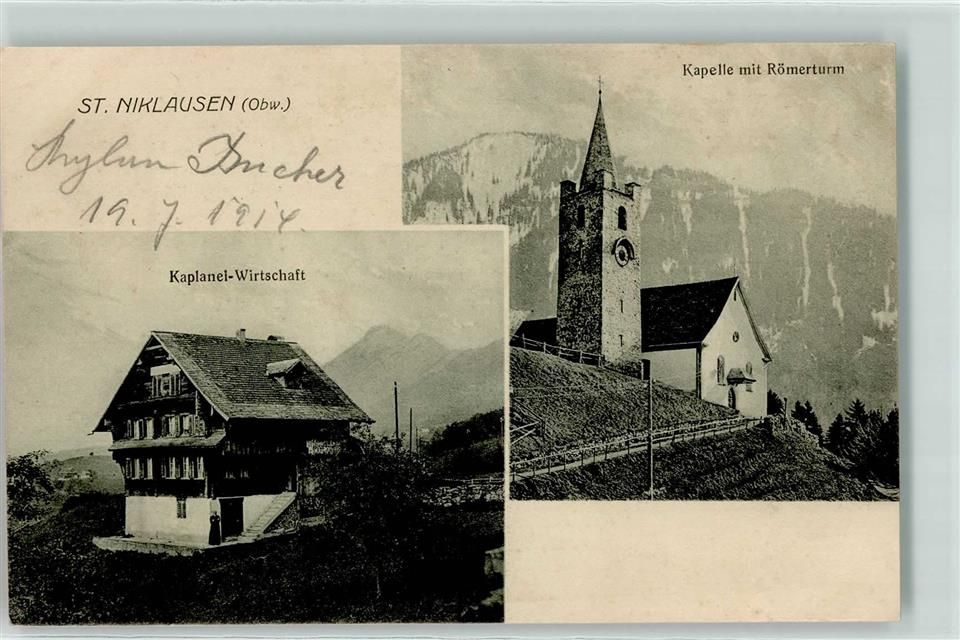 ST. NIKLAUSEN (Obw.)
Bucher
19. 7. 1914.
Kapelle mit Römerturm
Kaplanei-Wirtschaft